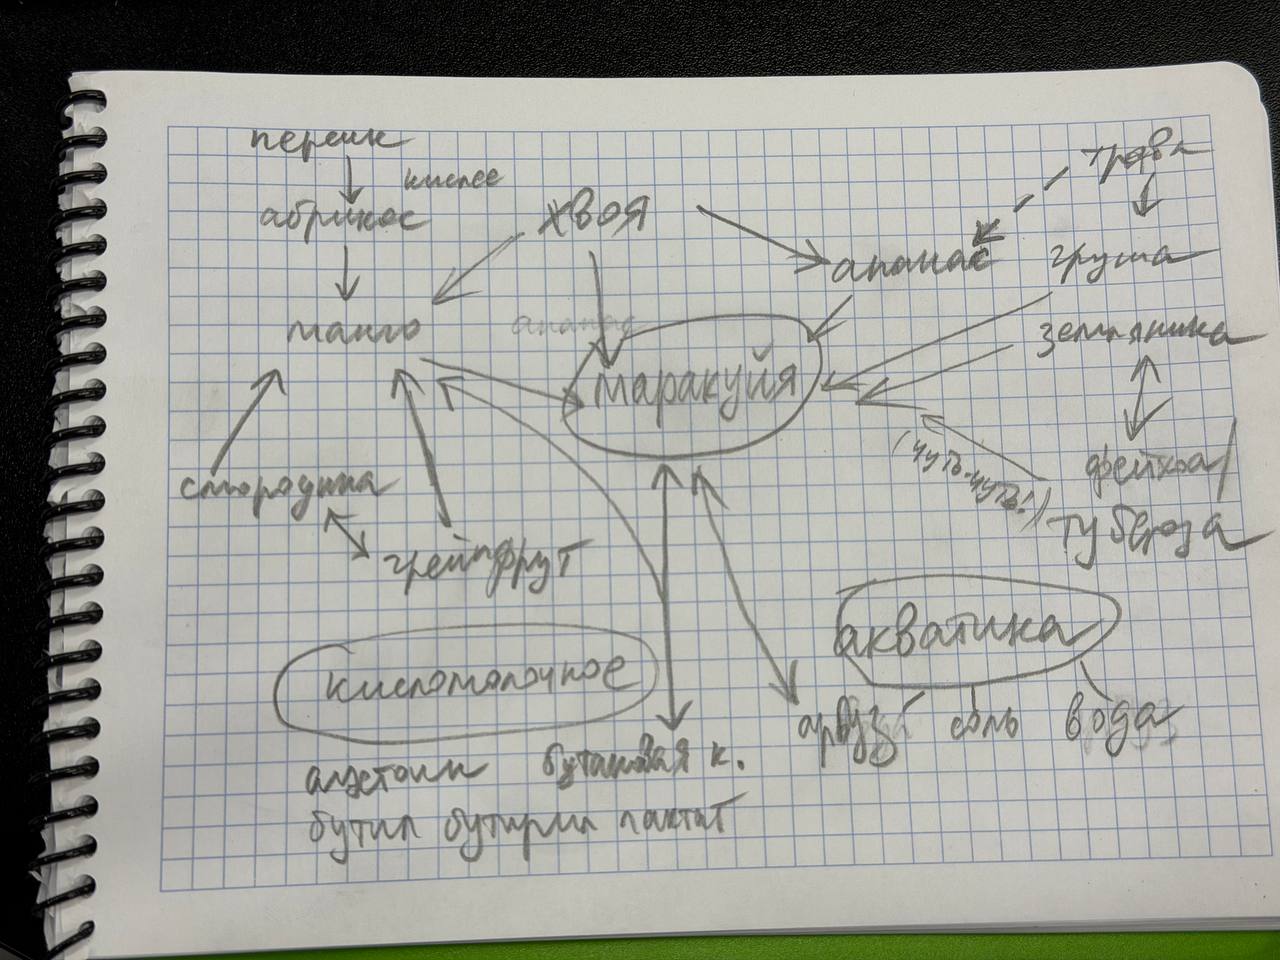 персик
трава
кислее
абрикос
хвоя
ананас
груша
манго
ананас
земляника
маракуйя
фейхоа
смородина
(чуть-чуть!)
тубероза
грейпфрут
акватика
кисломолочное
арбуз
соль
вода
ацетоин бутановая к.
бутил бутирил лактат